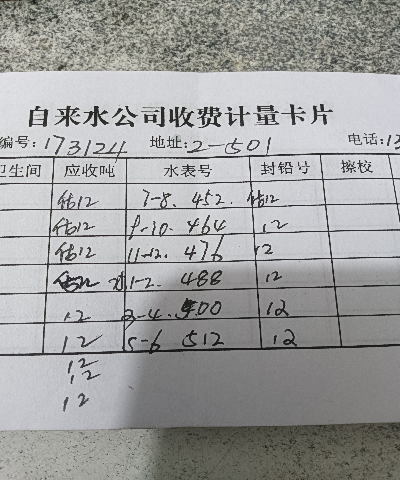 自来水公司收费计量卡片
编号: 173124 地址: 2-501 电话: 13
卫生间 应收吨 水表号 封铅号 擦校
估12 7-8. 452. 估12
估12 9-10. 464 12
估12 11-12. 476 12
估12 1-2. 488 12
12 3-4. 500 12
12 5-6 512 12
12
12
12